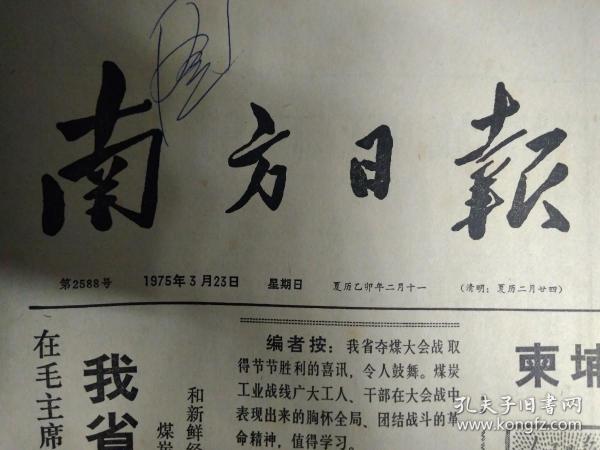 南方日報
第2588号 1975年3月23日 星期日 夏历乙卯年二月十一 (清明：夏历二月廿四)
在毛主席
我省
和新鲜经
煤炭
编者按：我省夺煤大会战取
得节节胜利的喜讯，令人鼓舞。煤炭
工业战线广大工人、干部在大会战中
表现出来的胸怀全局、团结战斗的革
命精神，值得学习。
柬埔
孔夫子旧书网
www.kongfz.com